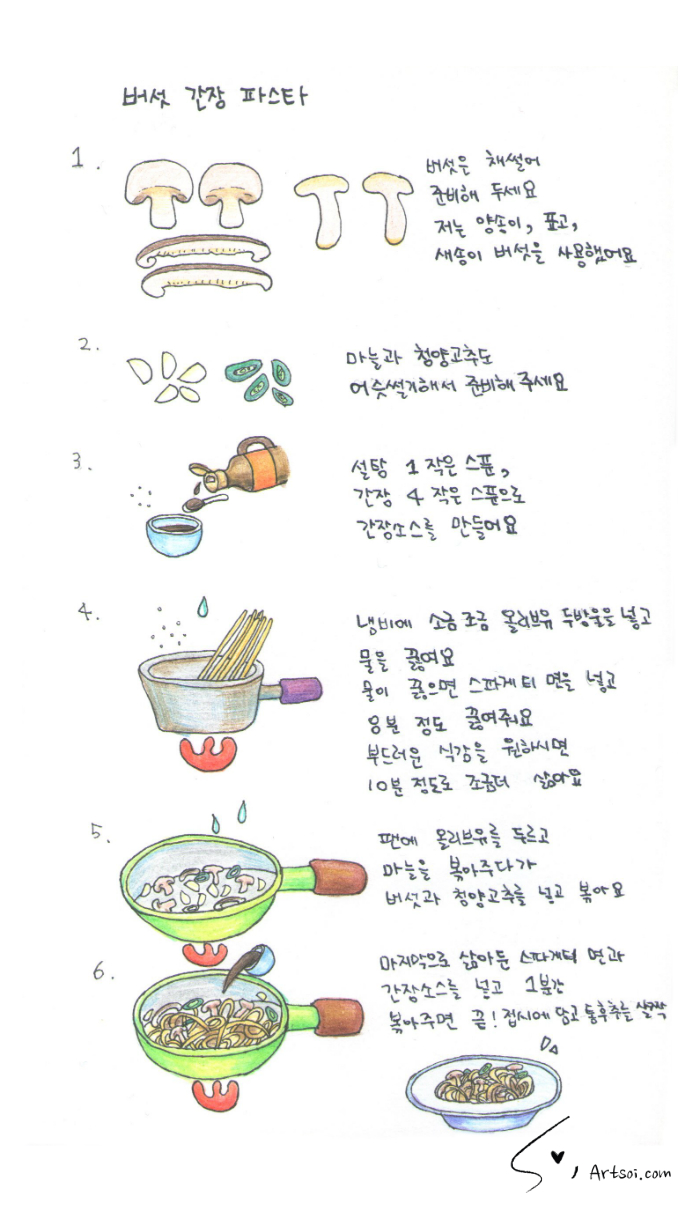 버섯 간장 파스타
1.
버섯은 채썰어
준비해 두세요
저는 양송이, 표고,
새송이 버섯을 사용했어요
2.
마늘과 청양고추도
어슷썰기해서 준비해주세요
3.
설탕 1 작은스푼,
간장 4 작은스푼으로
간장소스를 만들어요
4.
냄비에 소금조금 올리브유 두방울을 넣고
물을 끓여요
물이 끓으면 스파게티 면을 넣고
8분 정도 끓여줘요
부드러운 식감을 원하시면
10분 정도로 조금더 삶아요
5.
팬에 올리브유를 두르고
마늘을 볶아주다가
버섯과 청양고추를 넣고 볶아요
6.
마지막으로 삶아둔 스파게티 면과
간장소스를 넣고 1분간
볶아주면 끝! 접시에 담고 통후추를 살짝
Artsoi.com